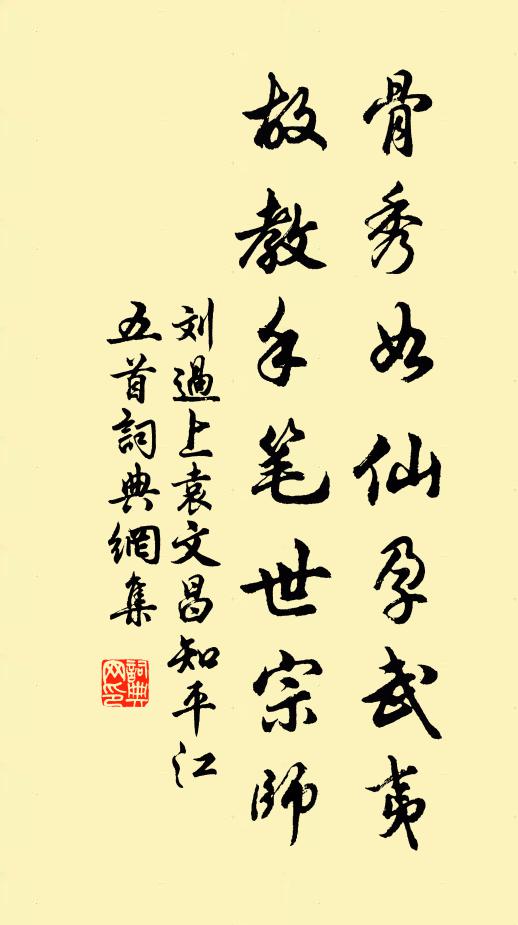 骨秀如仙孕武夷
故教手笔世宗師
刘過上袁文昌知平江
五首詞典網集
詞典网印